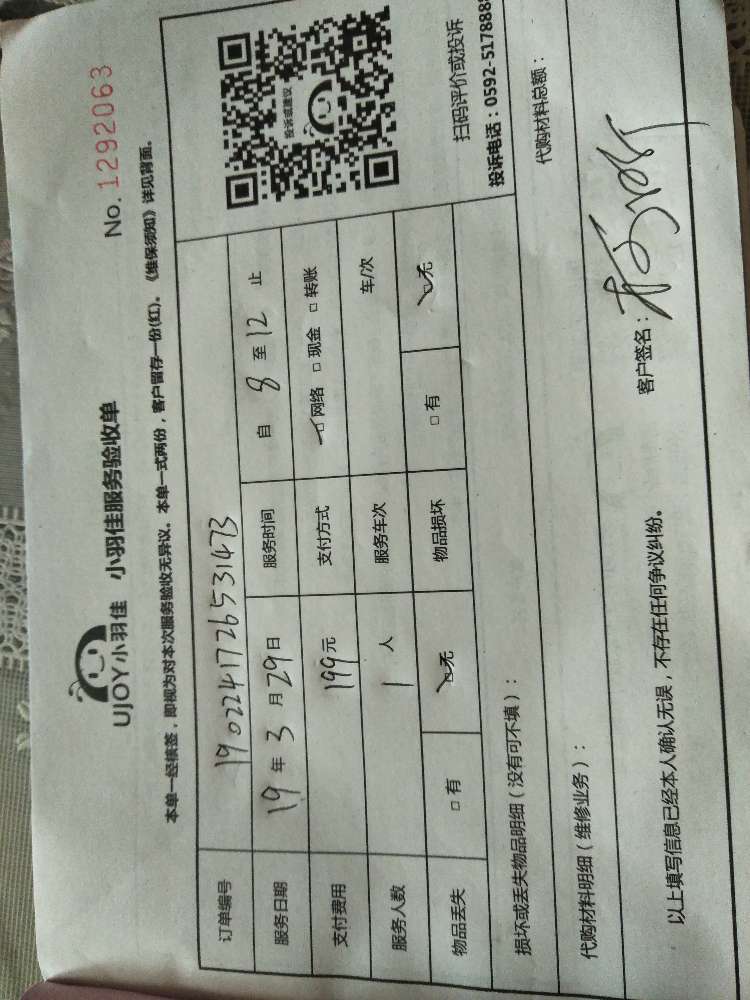 No. 1292063
UJOY小羽佳 小羽佳服务验收单
本单一经核签，即视为对本次服务验收无异议。本单一式两份，客户留存一份(红)。《维保须知》详见背面。
订单编号 19022417726531473
服务日期 19 年 3 月 29 日 服务时间 自 8 至 12 止
支付费用 199 元 支付方式 □ 网络 □ 现金 □ 转账
服务人数 1 人 服务车次 车/次
物品丢失 □ 有 □ 无 物品损坏 □ 有 □ 无
投诉或建议
扫码评价或投诉
投诉电话：0592-517888
损坏或丢失物品明细（没有可不填）：
代购材料明细（维修业务）： 代购材料总额：
以上填写信息已经本人确认无误，不存在任何争议纠纷。
客户签名：